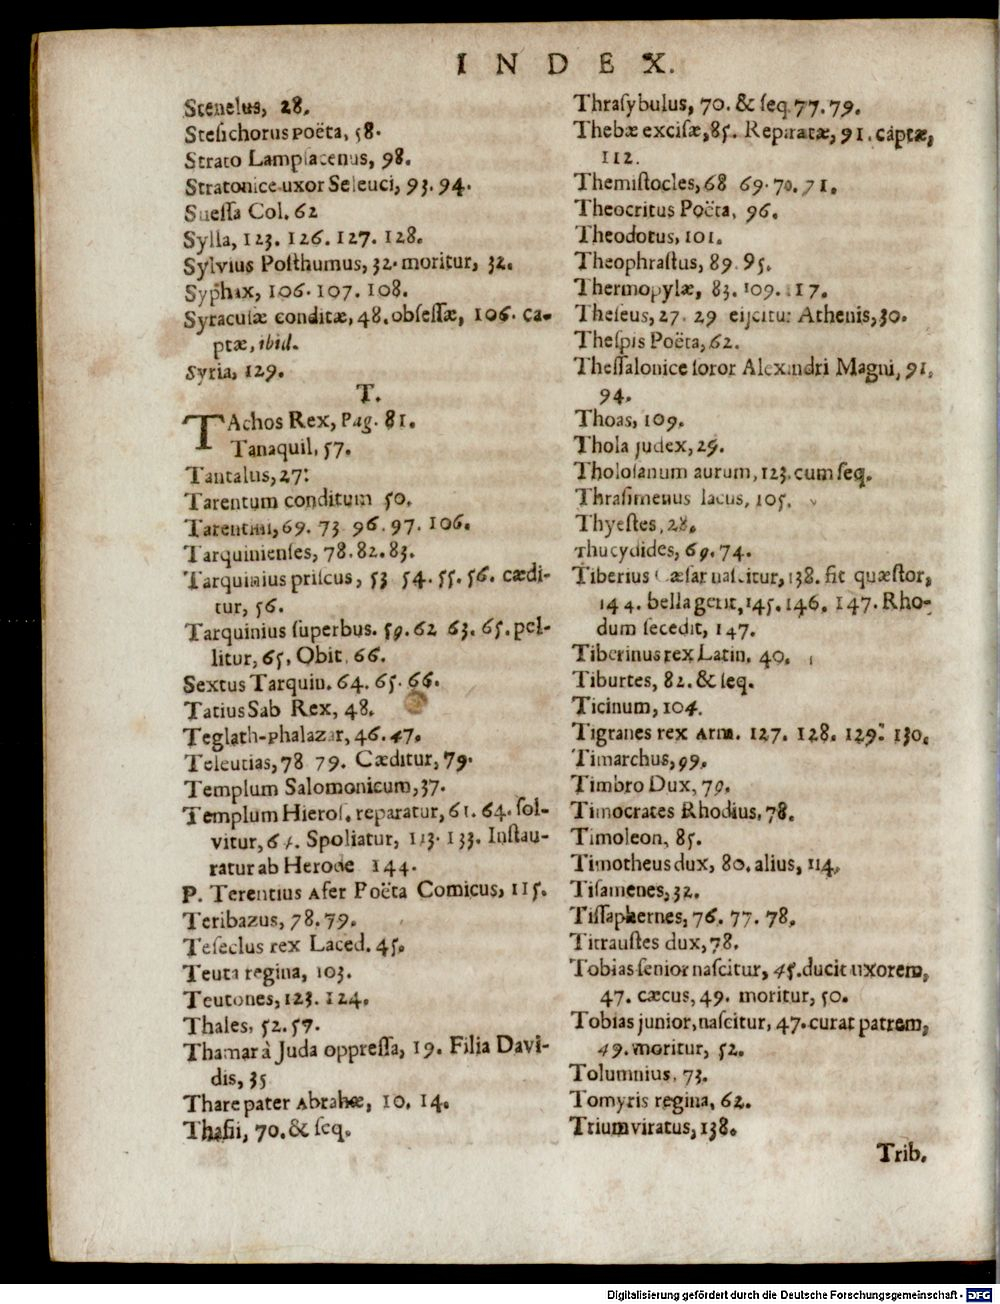 INDEX.
Stenelus, 28.
Steſichorus Poëta, 58.
Strato Lampſacenus, 98.
Stratonice uxor Seleuci, 93. 94.
Sueſſa Col. 62
Sylla, 123. 126. 127. 128.
Sylvius Poſthumus, 32. moritur, 32.
Syphax, 106. 107. 108.
Syracuſæ conditæ, 48. obſeſſæ, 106. ca-
ptæ, ibid.
Syria, 129.
T.
TAchos Rex, Pag. 81.
Tanaquil, 57.
Tantalus, 27.
Tarentum conditum 50.
Tarentini, 69. 73 96. 97. 106.
Tarquinienſes, 78. 82. 83.
Tarquinius priſcus, 53 54. 55. 56. cædi-
tur, 56.
Tarquinius ſuperbus. 59. 62 63. 65. pel-
litur, 65. Obit. 66.
Sextus Tarquin. 64. 65. 66.
Tatius Sab Rex, 48.
Teglath-phalazar, 46. 47.
Teleutias, 78 79. Cæditur, 79.
Templum Salomonicum, 37.
Templum Hieroſ. reparatur, 61. 64. ſol-
vitur, 64. Spoliatur, 113. 133. Inſtau-
ratur ab Herode 144.
P. Terentius Afer Poëta Comicus, 115.
Teribazus, 78. 79.
Teſeclus rex Laced. 45.
Teuta regina, 103.
Teutones, 123. 124.
Thales, 52. 57.
Thamar à Juda oppreſſa, 19. Filia Davi-
dis, 35
Thare pater Abrahæ, 10. 14.
Thaſii, 70. & ſeq.
Thraſybulus, 70. & ſeq. 77. 79.
Thebæ exciſæ, 85. Reparatæ, 91. captæ,
112.
Themiſtocles, 68 69. 70. 71.
Theocritus Poëta, 96.
Theodotus, 101.
Theophraſtus, 89. 95.
Thermopylæ, 83. 109. 117.
Theſeus, 27. 29 eijcitur Athenis, 30.
Theſpis Poëta, 62.
Theſſalonice ſoror Alexandri Magni, 91.
94.
Thoas, 109.
Thola judex, 29.
Tholoſanum aurum, 123. cum ſeq.
Thraſimenus lacus, 105.
Thyeſtes, 28.
Thucydides, 69. 74.
Tiberius Cæſar naſcitur, 138. fit quæſtor,
144. bella gerit, 145. 146. 147. Rho-
dum ſecedit, 147.
Tiberinus rex Latin. 40.
Tiburtes, 82. & ſeq.
Ticinum, 104.
Tigranes rex Arm. 127. 128. 129. 130.
Timarchus, 99.
Timbro Dux, 79.
Timocrates Rhodius, 78.
Timoleon, 85.
Timotheus dux, 80. alius, 114.
Tiſamenes, 32.
Tiſſaphernes, 76. 77. 78.
Titrauſtes dux, 78.
Tobias ſenior naſcitur, 45. ducit uxorem,
47. cæcus, 49. moritur, 50.
Tobias junior, naſcitur, 47. curat patrem,
49. moritur, 52.
Tolumnius, 73.
Tomyris regina, 62.
Triumviratus, 138.
Trib.
Digitalisierung gefördert durch die Deutsche Forschungsgemeinschaft - DFG